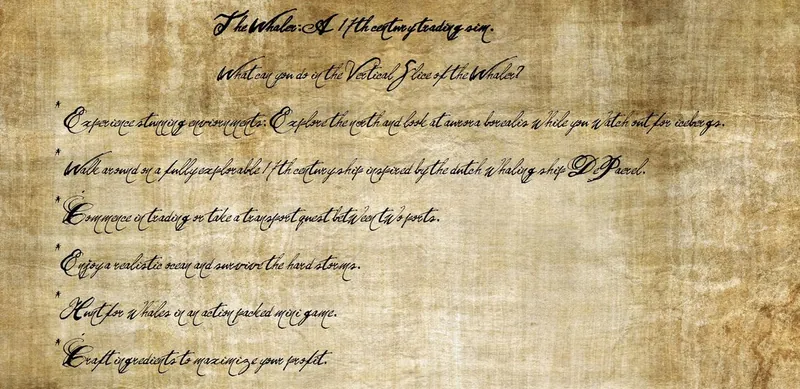 The Whaler: A 17th century trading sim.
What can you do in the Vertical Slice of the Whaler?
* Experience stunning enviornments: Explore the north and look at aurora borealis while you watch out for icebergs.
* Walk around on a fully explorable 17th century ship inspired by the dutch whaling ship De Paerel.
* Commence in trading or take a transport quest between two ports.
* Enjoy a realistic ocean and survive the hard storms.
* Hunt for whales in an action packed mini game.
* Craft ingredients to maximize your profit.